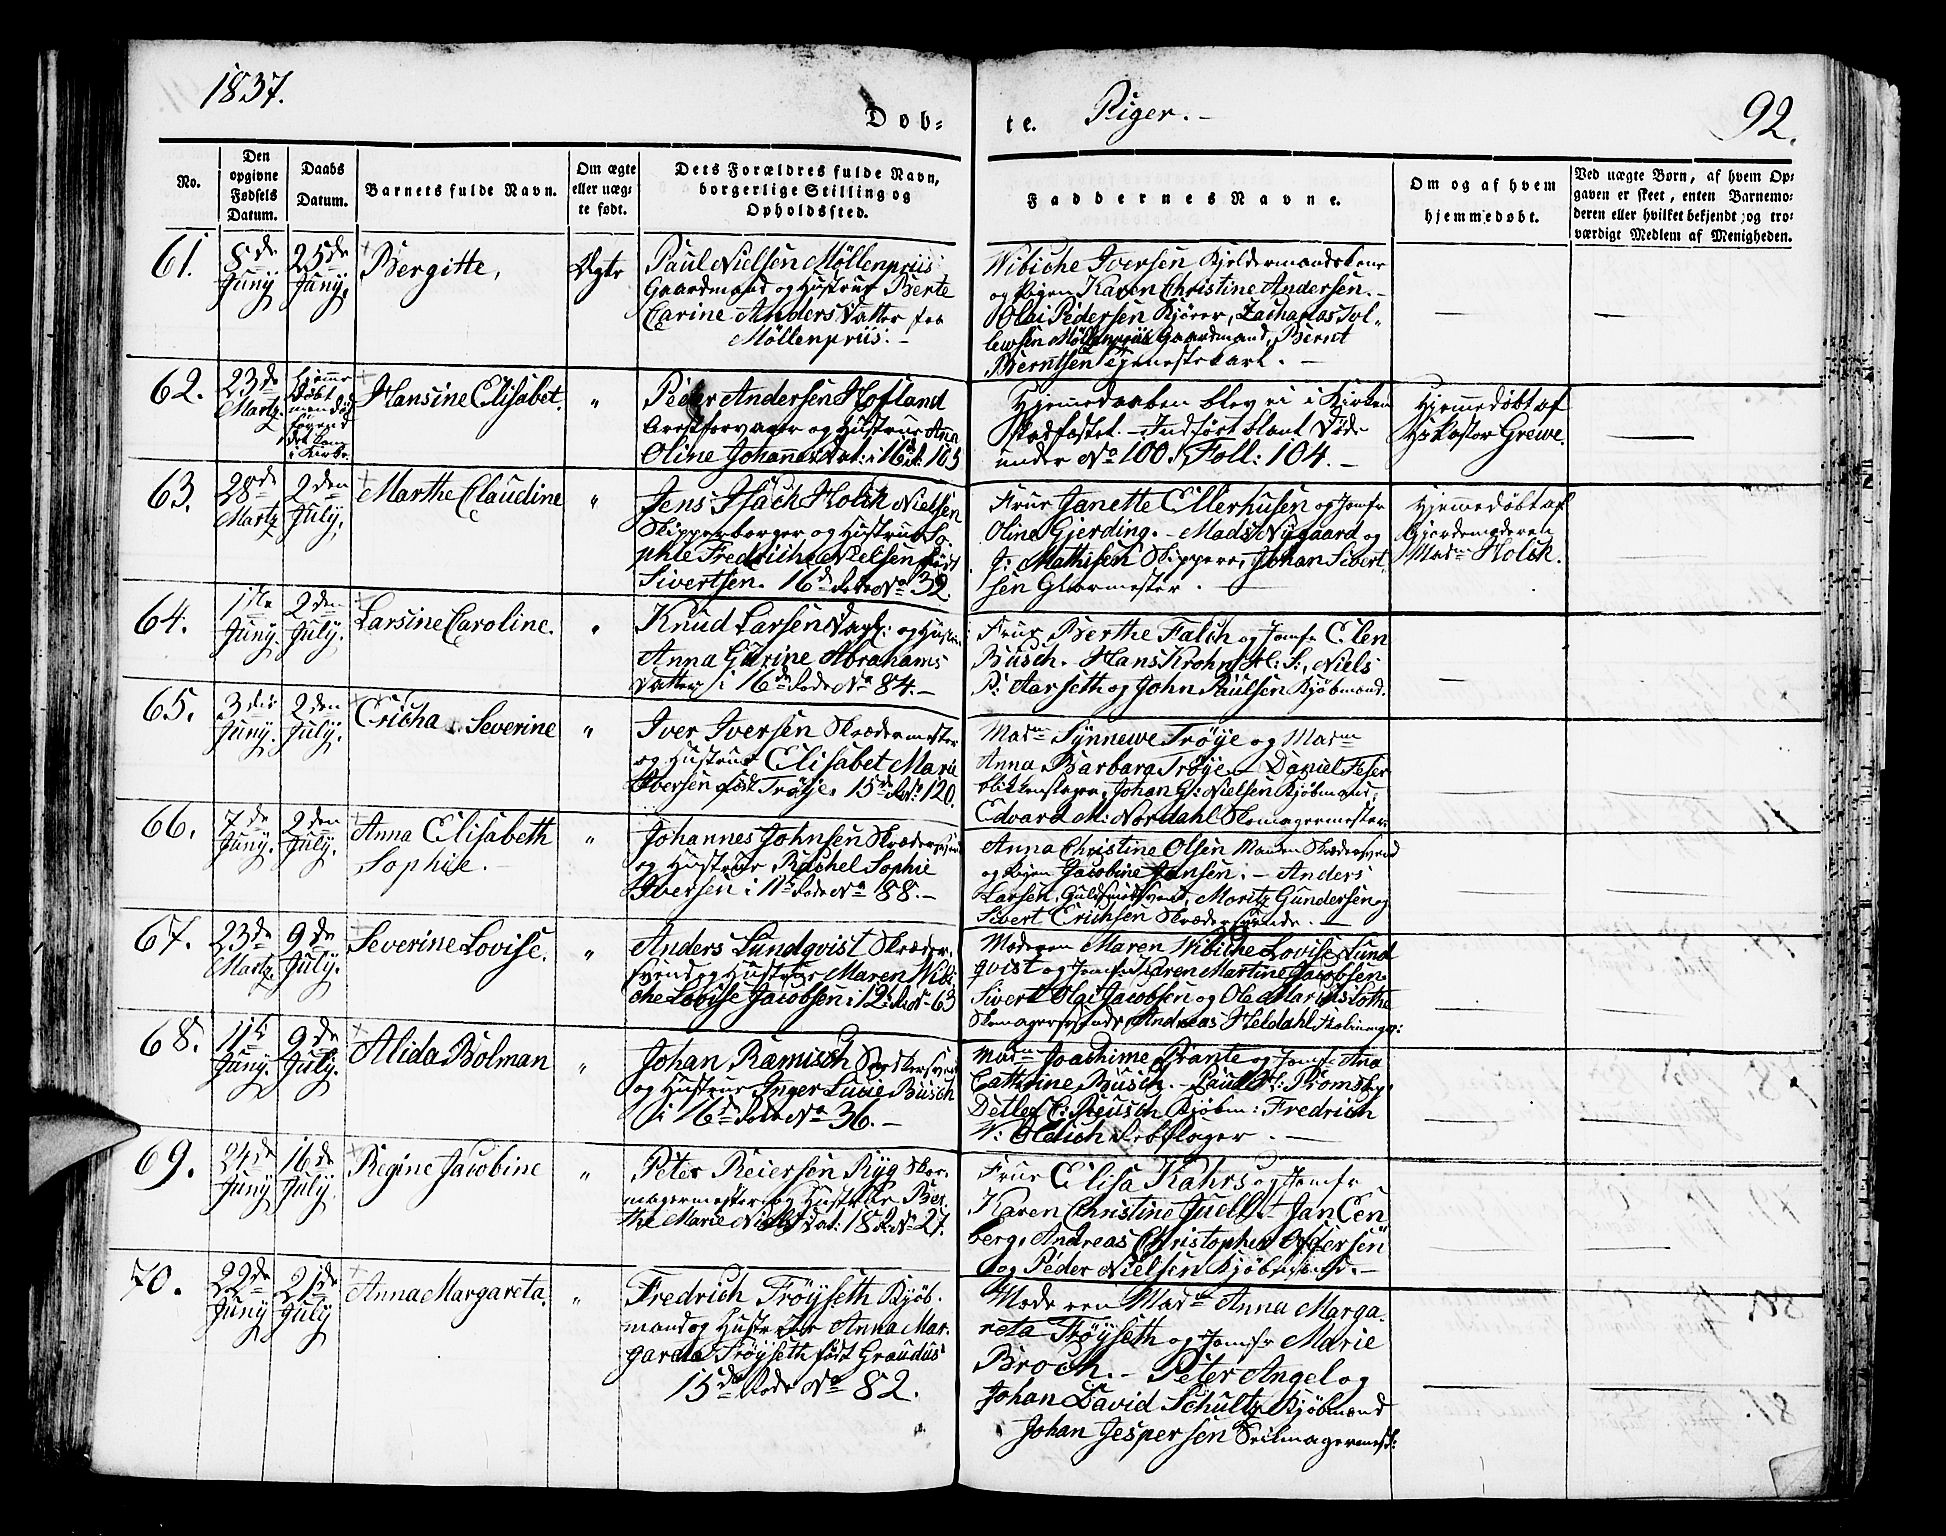 1837.
Døb-
te. Piger. -
92.
No.
Den
opgivne
Fødsels
Datum.
Daabs
Datum.
Barnets fulde Navn.
Om ægte
eller uæg-
te født.
Dets Forældres fulde Navn,
borgerlige Stilling og
Opholdssted.
Faddernes Navne.
Om og af hvem
hjemmedøbt.
Ved uægte Børn, af hvem Op-
gaven er skeet, enten Barnemo-
deren eller hvilket bekjendt og tro-
værdigt Medlem af Menigheden.
61.
8de
Juny
25de
Juny,
Bergitte,
Ægte
Paul Nielsen Møllenpriis
Gaardmand og Hustrue Berte
Carine Anders Datter fra
Møllenpriis. -
Wibiche Iversen Kjeldermandskone
og Pigen Karen Christine Andersen. -
Olai Pedersen Kjører, Zacharias Tol-
lewsen Møllenpriis Gaardmand, Bernt
Berntsen Tjenestekarl. -
62.
23de
Martz
hjemme
døbt
men død
Hansine Elisabet.
"
Peder Andersen Hofland
Arrestforvarer og Hustrue Anna
Oline Johannes Dat: i 16 d: 103
Hjemmedaaben blev ei i Kirken
stadfæstet. - Indført blant Døde
under No 100. Foll: 104. -
Hjemmedøbt af
Hr Pastor Grewe.
63.
28de
Martz
2den
July,
Marthe Claudine
"
Jens Fach Holck Nielsen
Skipperborger og Hustrue So-
phie Fredriche Nielsen født
Sivertsen. 16de Rode No 32.
Frue Janette Ellerhusen og Jomfr
Oline Gjerding. - Mads Nygaard og
J: Mathisen Skippere, Johan Sivert-
sen Glarmester. -
Hjemmedøbt af
Gjordemoderen
Madme Holck.
64.
1ste
Juny.
2den
July.
Larsine Caroline.
"
Knud Larsen Dagk: og Hustrue
Anna Gurine Abrahams
Datter i 16de Rode No 84. -
Frue Berthe Falch og Jomfr Elen
Busch. Hans Krohn H: S:, Niels
P: Aarseth og John Paulsen Kjøbmænd.
65.
3die
Juny.
2den
July.
Ericha Severine
"
Iver Iversen Skrædermester
og Hustrue Elisabet Marie
Iversen født Trøye. 15de Rode 120.
Madme Synnewe Trøye og Madme
Anna Barbara Trøye. - Daniel Feser
blikkenslager, Johan G: Nielsen Kjøbmand,
Edvard M: Nordahl Skomagermester
66.
7de
Juny.
2den
July.
Anna Elisabeth
Sophie. -
"
Johannes Johnsen Skrædersvend
og Hustrue Rachel Sophie
Iversen i 11te Rode No 88. -
Anna Christine Olsen Manden Skrædersvend
og Pigen Jacobine Jansen. - Anders
Larsen, Guldsmedsvend, Moritz Gundersen og
Sivert Erichsen Skrædersvende. -
67.
23de
Martz.
9de
July.
Severine Lovise.
"
Anders Lundqvist Skræder-
svend og Hustrue Maren Wibi-
che Lovise Jacobsen i 12 Rode - 63
Moderen Maren Wibiche Lovise Lund
qvist og Jomfr Karen Martine Jacobsen.
Sivert Olai Jacobsen og Ole Marius Lothe
Skomagersvende, Andreas Heldahl
68.
11te
Juny.
9de
July.
Alida Bolman
"
Johan Ramisch svend
og Hustrue Inger Lucie Busch
i 16de Rode No 36. -
Madme Joachime Brante og Jomfr Ana
Cathrine Busch. - Paul H: Tromsby,
Detlef C: Reusch Kjøbm: Fredrich
W: Oldich Rebslager. -
69.
24de
Juny
16de
July.
Regine Jacobine
"
Peter Reiersen Ryg Sko-
magermester og Hustrue Ber-
the Marie Niels Dat: 18 R No 27.
Frue Elisa Kahrs og Jomfr
Karen Christine Juell. - Jan Cen
berg, Andreas Christopher Andersen
og Peder Nielsen Kjøbmænd. -
70.
22de
Juny
21de
July
Anna Margareta.
"
Fredrich Trøyseth Kjøb-
mand og Hustrue Anna Mar-
gareta Trøyseth født Graudus
15de Rode No 82.
Moderen Madme Anna Marga-
reta Trøyseth og Jomfr Marie
Broch. - Peter Angel og
Johan David Schultz Kjøbmænd
Johan Jespersen Seilmagermest: